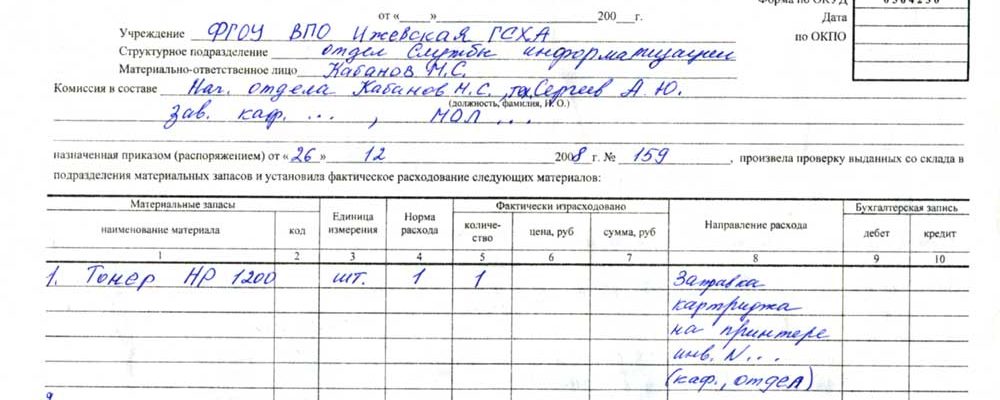 Форма по ОКУД 0504230
от « » 200 г. Дата
Учреждение ФГОУ ВПО Ижевская ГСХА по ОКПО
Структурное подразделение отдел Службы информатизации
Материально-ответственное лицо Кабанов М.С.
Комиссия в составе Нач. отдела Кабанов М.С., Сергеев А.Ю.
(должность, фамилия, И. О.)
зав. каф. ... , МОЛ ...
назначенная приказом (распоряжением) от « 26 » 12 2008 г. № 159 , произвела проверку выданных со склада в
подразделения материальных запасов и установила фактическое расходование следующих материалов:
Материальные запасы Единица измерения Норма расхода Фактически израсходовано Направление расхода Бухгалтерская запись
наименование материала код количе-ство цена, руб сумма, руб дебет кредит
1 2 3 4 5 6 7 8 9 10
1. Тонер HP 1200 шт. 1 1 Заправка
картриджа
на принтере
инв. N...
(каф., отдел)